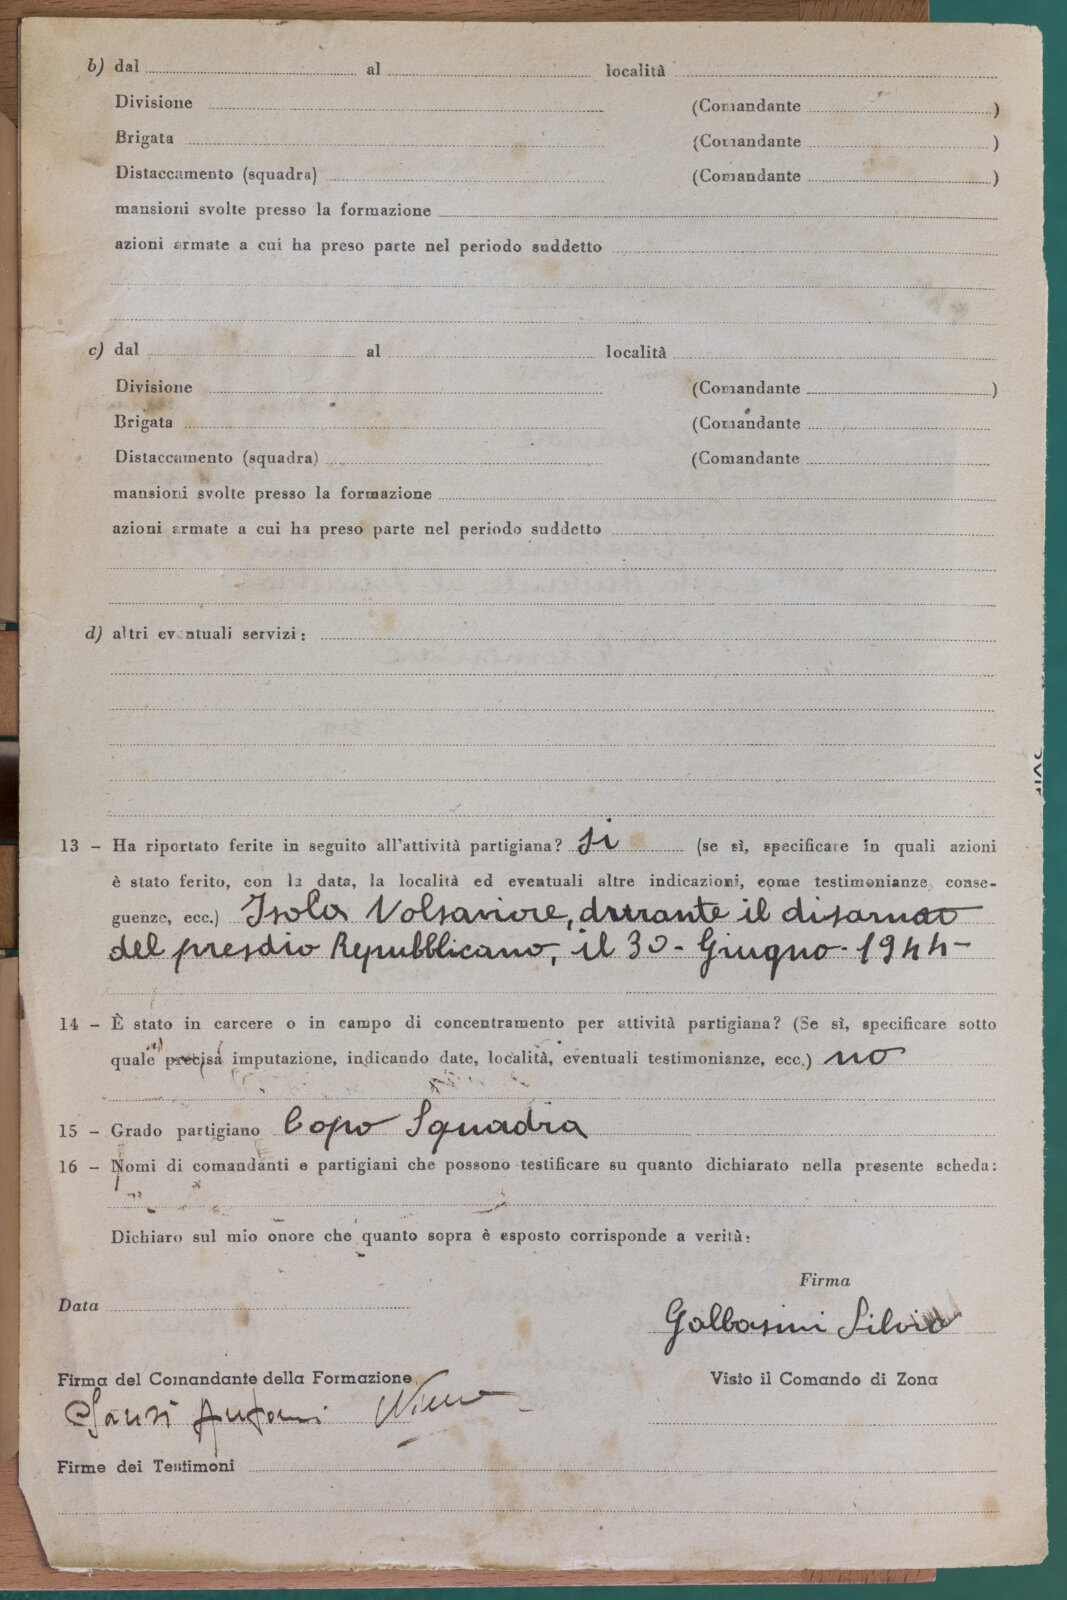 b) dal al località
Divisione (Comandante )
Brigata (Comandante )
Distaccamento (squadra) (Comandante )
mansioni svolte presso la formazione
azioni armate a cui ha preso parte nel periodo suddetto
c) dal al località
Divisione (Comandante )
Brigata (Comandante
Distaccamento (squadra) (Comandante
mansioni svolte presso la formazione
azioni armate a cui ha preso parte nel periodo suddetto
d) altri eventuali servizi:
13 – Ha riportato ferite in seguito all'attività partigiana? si (se sì, specificare in quali azioni
è stato ferito, con la data, la località ed eventuali altre indicazioni, come testimonianze, conse-
guenze, ecc.) Isola Valsaviore, durante il disarmo
del presdio Repubblicano, il 30 - Giugno - 1944 -
14 – È stato in carcere o in campo di concentramento per attività partigiana? (Se sì, specificare sotto
quale precisa imputazione, indicando date, località, eventuali testimonianze, ecc.) no
15 – Grado partigiano Capo Squadra
16 – Nomi di comandanti e partigiani che possono testificare su quanto dichiarato nella presente scheda:
Dichiaro sul mio onore che quanto sopra è esposto corrisponde a verità:
Firma
Data
Galbasini Silvio
Firma del Comandante della Formazione Visto il Comando di Zona
Firme dei Testimoni